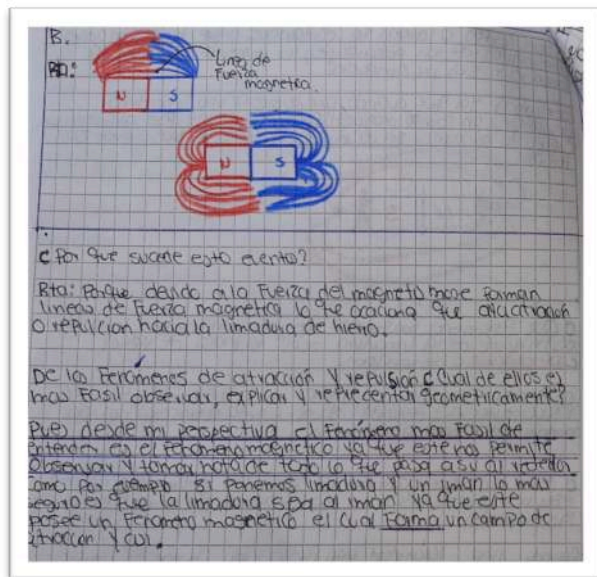 B.
Rta:
Linea de
Fuerza
magnetica.
N S
N S
¿Por que sucede esto evento?
Rta: Porque devido a la Fuerza del magneto forman
lineas de Fuerza magnetica lo que ocaciona que atracion
o repulcion hacia la limadura de hierro.
De los Fenómenes de atracción y repulsión ¿Cual de ellos es
mas Fasil observar, explicar y representar geometricamente?
Pues desde mi perspectiva el Fenómeno mas Fasil de
entender es el Fenomeno magnetico ya que este nos permite
Observar y tomar nota de todo lo que pasa a su al rededor
como por ejemplo si ponemos limadura y un iman lo mas
seguro es que la limadura al iman ya que este
posee un Fenomeno magnetico el cual Forma un campo de
atraccion y